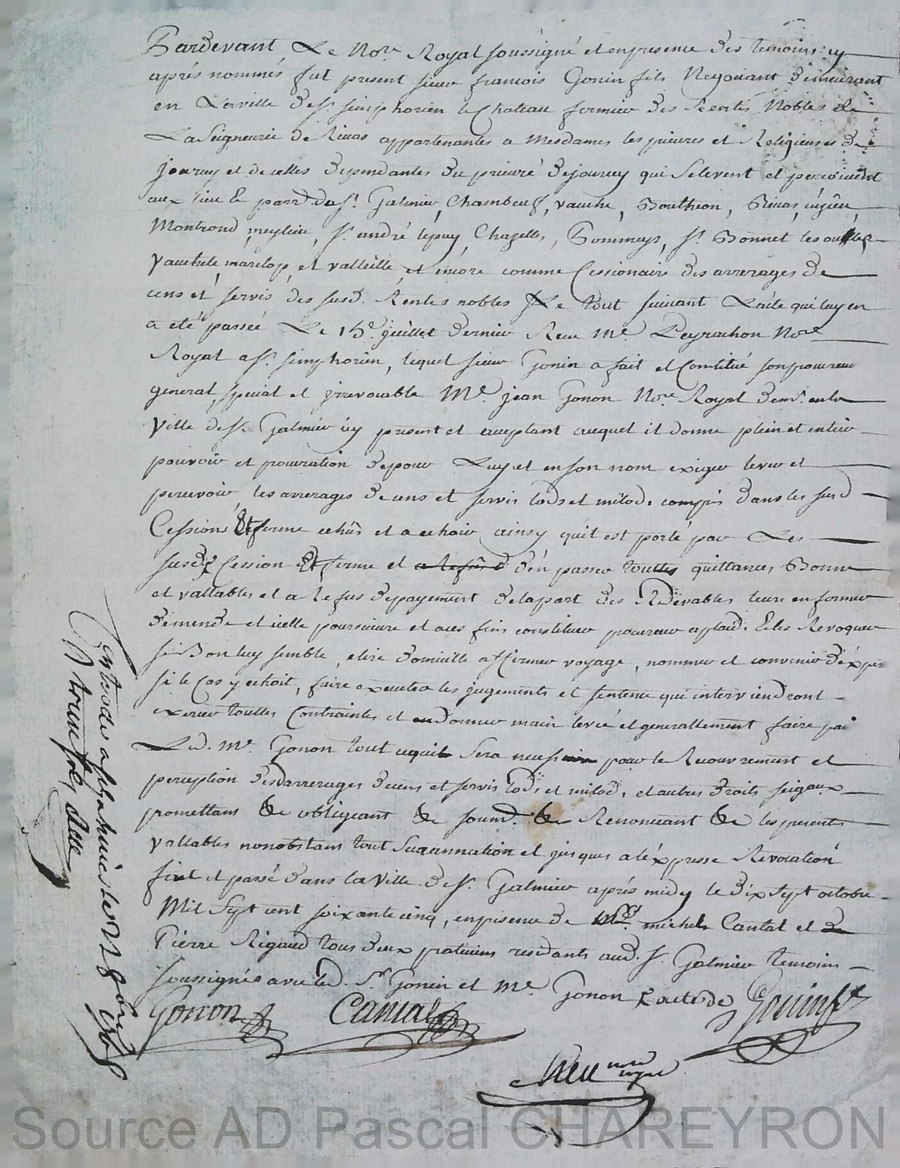 Pardevant Le Nore Royal soussigné et en presence des temoins cy
après nommés fut present sieur francois Gonin fils Negotiant demeurant
en La ville de St simphorien le Chateau fermier des Rentes Nobles de
La Seigneurie de Rivas appartenantes a Mesdames les prieures et Religieuses de
jourcey et de celles dependantes du prieuré de jourcey qui se levent et percoivent
aux lieu & parr. de St Galmier, Chambeuf, vauche, Boutheon, Rivas,
Montrond, meylieu, St andré le puy, Chazelles, Pommeys, St Bonnet les oulles
vauchele marclop, et valleille et encore comme Cessionaire des arrerages de
cens et servis des susd. Rentes nobles Le tout suivant L'acte qui luy en
a eté passée Le 15e juillet dernier Reçu Me Peyrachon Nore
Royal a St simphorien, lequel sieur Gonin a fait et Constitué son procureur
general, special et irrevocable Me jean Gonon Nore Royal demt. en la
ville de St Galmier icy present et acceptant auquel il donne plein et entier
pouvoir et procuration de pour Luy et en son nom exiger lever et
percevoir les arrerages de cens et servis lods et milod. compris dans les susd
Cessions et ferme echûs et a echoir ainsy qu'il est porté par Les
susd. Cession et ferme et d'en passer touttes quittances Bonne
et vallables et a Refus de payement de la part des Redevables leur en former
demende et icelle poursuivre et a ces fins constituer procureur a plaid. & les Revoquer
si Bon luy semble, elire domicille affirmer voyage, nommer et convenir d'expers
si le Cas y echoit, faire executer les jugements et sentence qui interviendront
exercer touttes Contraintes et en donner main levée et generallement faire par
Led. Me Gonon tout ce quil sera necessaire pour le Recouvrement et
perception desd arrerages de cens et servis lods et milod, et autres droits seigaux
promettans &c obligeant &c soumd. &c Renoncant &c les presentes
vallables nonobstans tout Surannation et jusques a l'expresse Revocation
fait et passé dans la ville de St Galmier après midy le dix sept octobre
Mil Sept cent soixante cinq, en presence de michel Cantal et de
Pierre Rigaud tous deux praticiens residants aud. St Galmier temoins
soussignés avec led. Sr Gonin et Me Gonon
Gonon Cantal Gonin fs
nore
royal
Source AD Pascal CHAREYRON